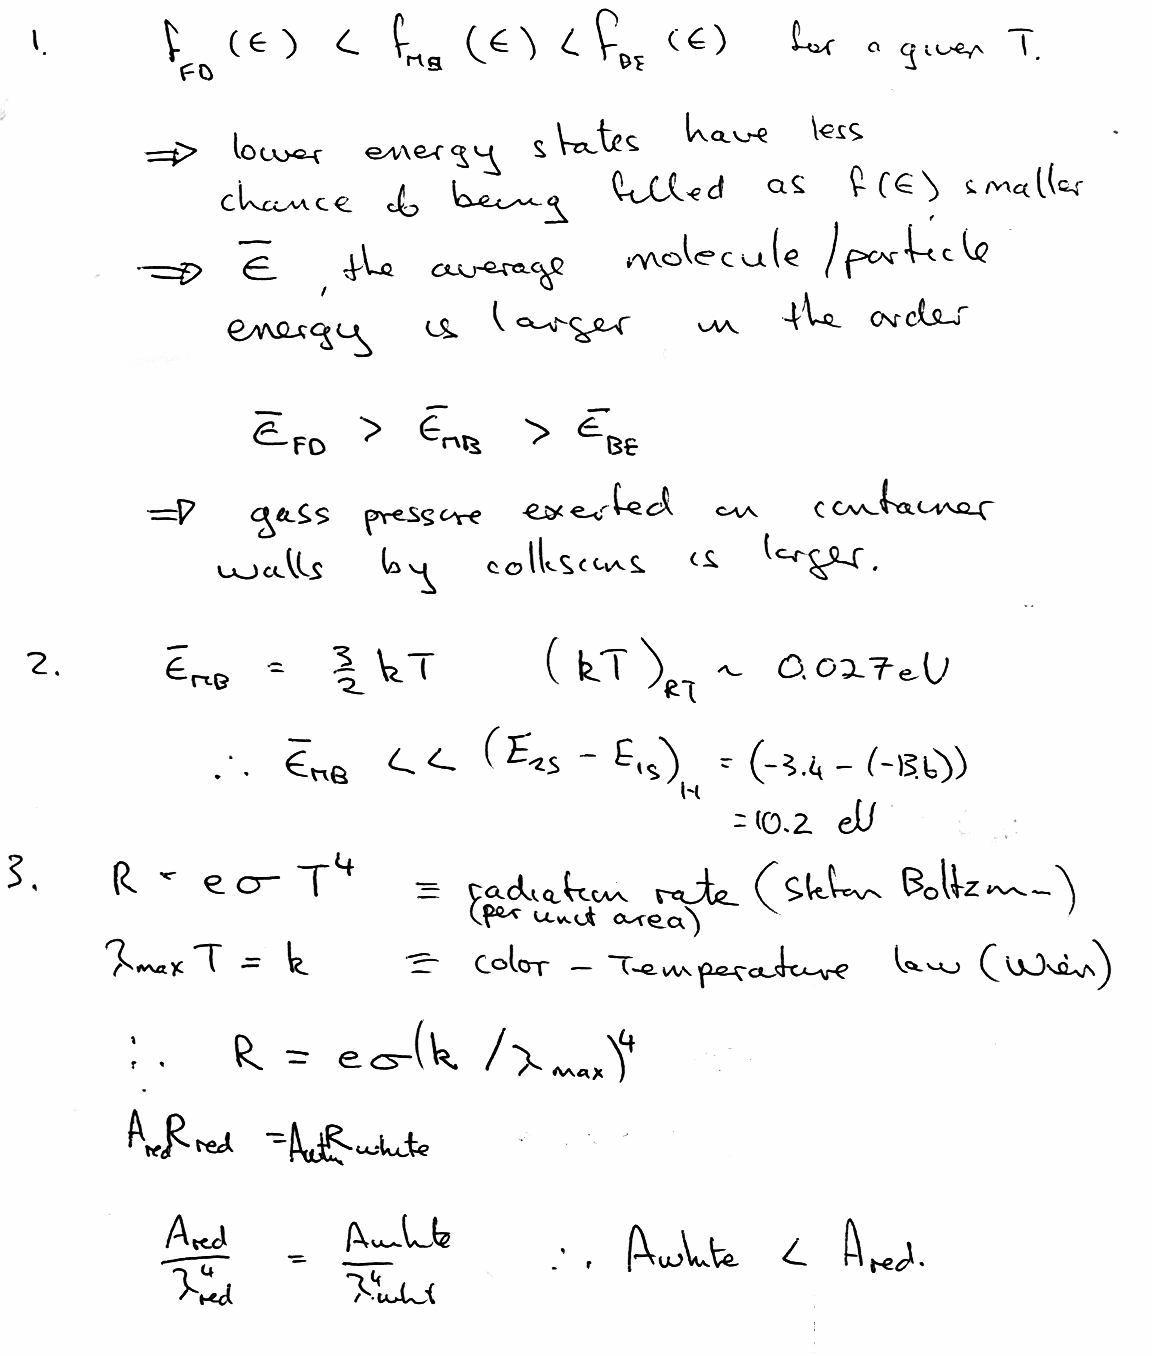 1. f_FD (ϵ) < f_MB (ϵ) < f_BE (ϵ) for a given T.
⇒ lower energy states have less
chance of being filled as f(ϵ) smaller
⇒ ϵ̅, the average molecule/particle
energy is larger in the order
ϵ̅_FD > ϵ̅_MB > ϵ̅_BE
⇒ gass pressure exerted on container
walls by collisions is larger.
2. ϵ̅_MB = 3/2 kT (kT)_RT ~ 0.027eV
∴ ϵ̅_MB << (E_2S - E_1S)_H = (-3.4 - (-13.6))
= 10.2 eV
3. R = eσT⁴ ≡ radiation rate (Stefan Boltzman)
(per unit area)
λ_max T = k ≡ color - Temperature law (Wien)
∴ R = eσ(k/λ_max)⁴
A_red R_red = A_white R_white
A_red/λ⁴_red = A_white/λ⁴_whit ∴ A_white < A_red.